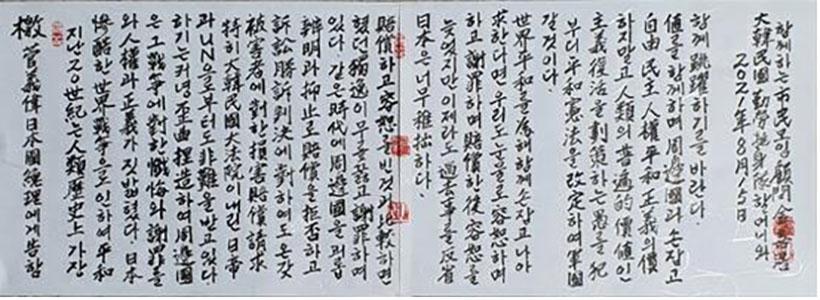 檄 菅義偉 日本國總理에게 告함
지난 20世紀는 人類歷史上 가장
慘酷한 世界戰爭으로 인하여 平和
와 人權과 正義가 짓밟혔다. 日本
은 그 戰爭에 對한 懺悔와 謝罪를
하기는커녕 歪曲捏造하여 周邊國
과 UN으로부터도 非難을 받고 있다.
特히 大韓民國 大法院이 내린 日帝
被害者에 對한 損害賠償請求
訴訟 勝訴判決에 對하여도 온갖
辨明과 抑止로 賠償을 拒否하고
있다. 같은 時代에 周邊國을 괴롭
혔던 獨逸이 무릎 꿇고 謝罪하며
賠償하고 容恕를 빈 것과 比較하면
日本은 너무 稚拙하다.
늦었지만 이제라도 過去事를 反省
하고 謝罪하며 賠償한 後 容恕를
求한다면 우리도 눈물로 容恕하며
世界平和를 爲해 함께 손잡고 나아
갈 것이다.
부디 平和憲法을 改定하여 軍國
主義 復活을 劃策하는 愚를 犯
하지 말고 人類의 普遍的 價値인
自由 民主 人權 平和 正義의 價
値를 함께하며 周邊國과 손잡고
함께 跳躍하기를 바란다.
2021年 8月 15日
大韓民國 勤勞挺身隊 할머니와
함께하는 市民모임 顧問 金